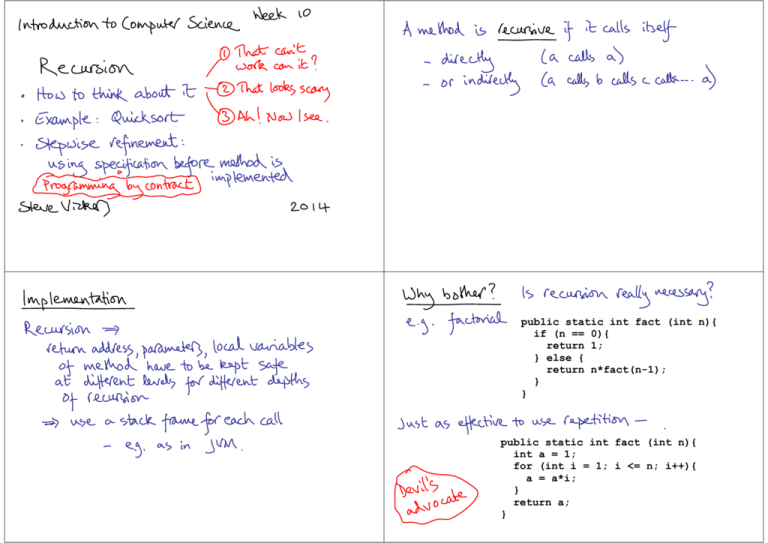 Introduction to Computer Science Week 10
Recursion
• How to think about it
① That can't
work can it?
② That looks scary
③ Ah! Now I see.
• Example: Quicksort
• Stepwise refinement:
using specification before method is
implemented
Programming by contract
Steve Vickers
2014
A method is recursive if it calls itself
- directly (a calls a)
- or indirectly (a calls b calls c calls.... a)
Implementation
Recursion ⇒
return address, parameters, local variables
of method have to be kept safe
at different levels for different depths
of recursion
⇒ use a stack frame for each call
- e.g. as in JVM.
Why bother? Is recursion really necessary?
e.g. factorial
public static int fact (int n){
if (n == 0){
return 1;
} else {
return n*fact(n-1);
}
}
Just as effective to use repetition —
public static int fact (int n){
int a = 1;
for (int i = 1; i <= n; i++){
a = a*i;
}
return a;
}
Devil's
advocate